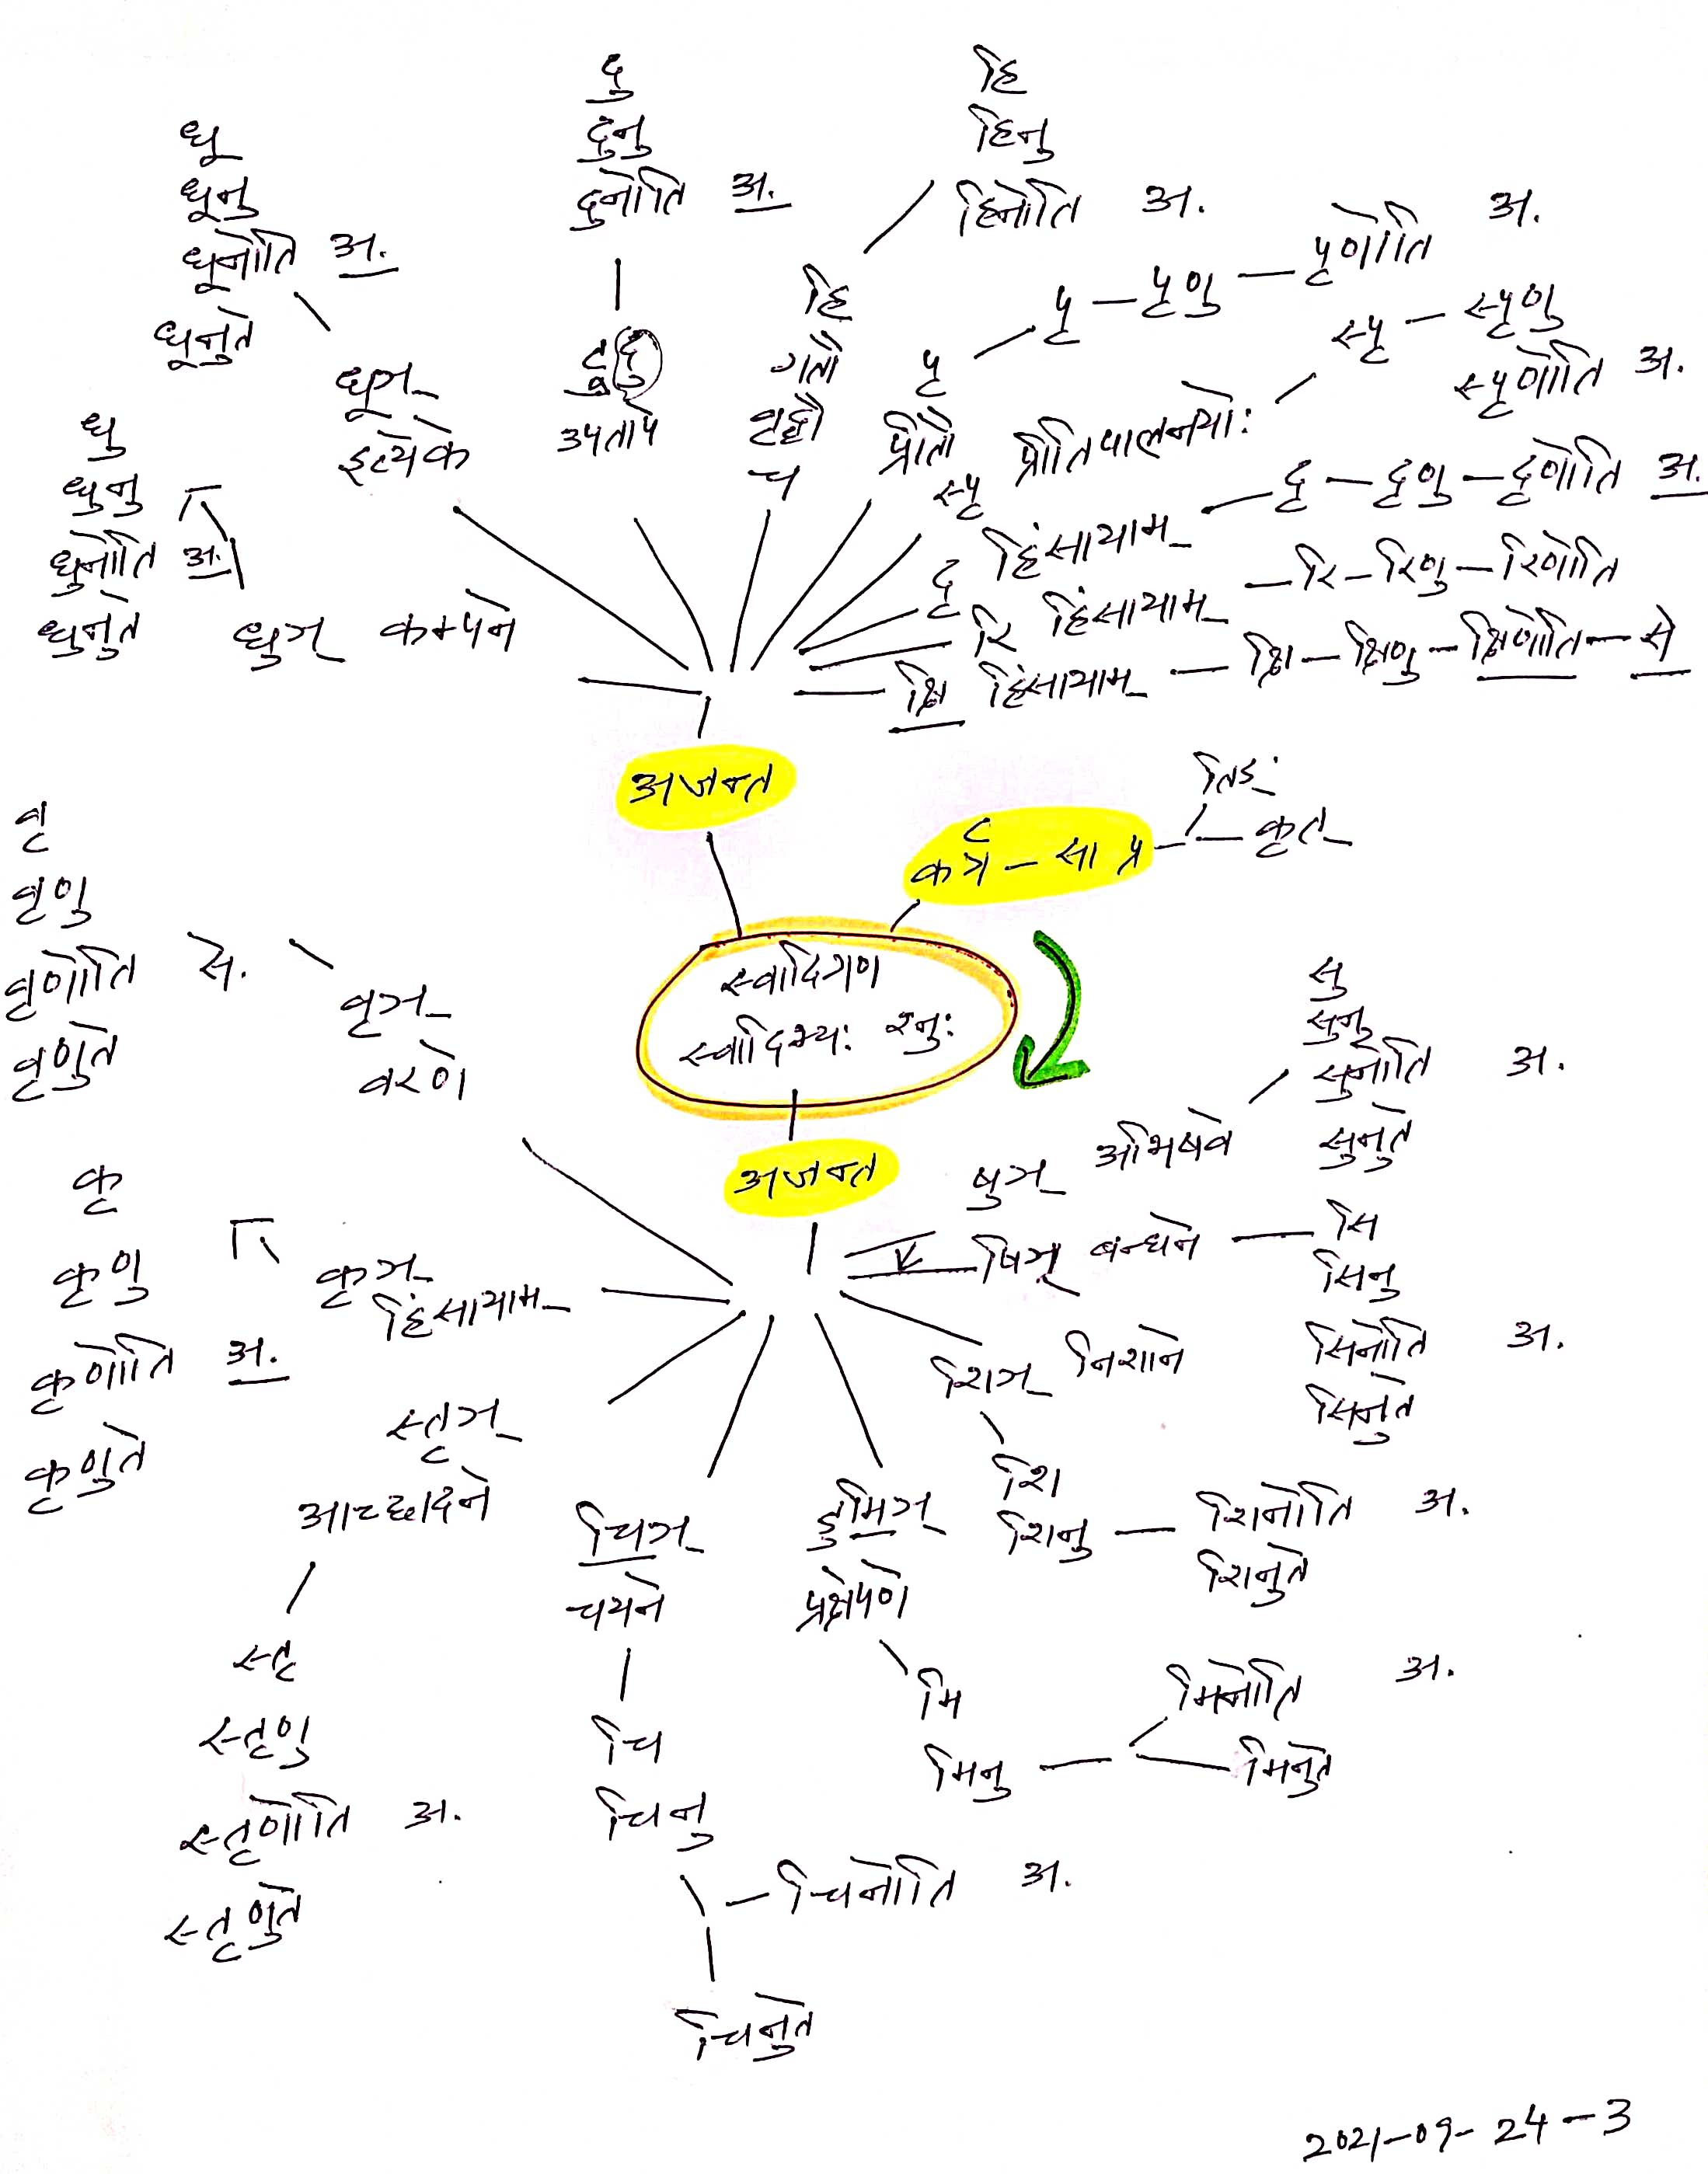 दु
दुनु
दुनोति अ.
हि
हिनु
हिनोति अ.
धू
धूनु
धूनोति अ.
धूनुते
धूञ्
इत्येके
टुदु
उपतापे
हि
गतौ
वृद्धौ
च
पृ
प्रीतौ
पृ – पृणु – पृणोति अ.
स्पृ प्रीतिपालनयोः
स्पृ – स्पृणु
स्पृणोति अ.
दृ हिंसायाम् – दृ – दृणु – दृणोति अ.
रि हिंसायाम् – रि – रिणु – रिणोति
क्षि हिंसायाम् – क्षि – क्षिणु – क्षिणोति – से
धु
धुनु
धुनोति अ.
धुनुते
धुञ् कम्पने
अजन्त
कर्त्रे – सा प्र –
तिङः
कृत्
स्वादिगण
स्वादिभ्यः श्नुः
अजन्त
वृ
वृणु
वृणोति से.
वृणुते
वृञ्
वरणे
षुञ् अभिषवे
सु
सुनु
सुनोति अ.
सुनुते
षिञ् बन्धने – सि
सिनु
सिनोति अ.
सिनुते
कृ
कृणु
कृणोति अ.
कृणुते
कृञ्
हिंसायाम्
शिञ् निशाने
शि
शिनु – शिनोति अ.
शिनुते
स्तृञ्
आच्छादने
स्तृ
स्तृणु
स्तृणोति अ.
स्तृणुते
चिञ्
चयने
चि
चिनु
– चिनोति अ.
चिनुते
डुमिञ्
प्रक्षेपणे
मि
मिनु –
मिनोति अ.
मिनुते
2021-09-24-3